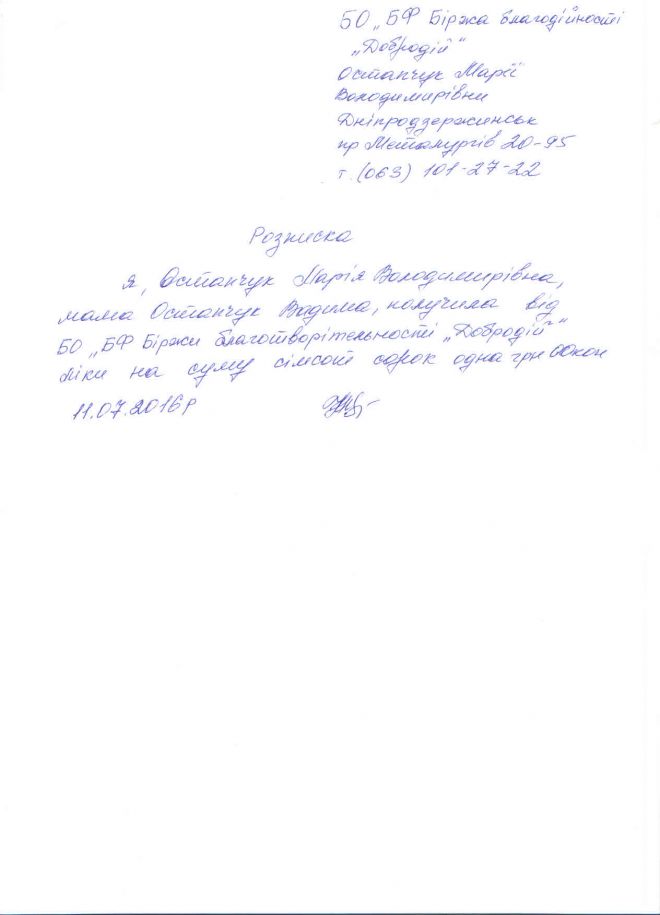 БО „БФ Біржа благодійності
„Добродій"
Остапчук Марії
Володимирівни
Дніпродзержинськ
пр Металургів 20-95
т. (063) 101-27-22
Розписка
Я, Остапчук Марія Володимирівна,
мама Остапчук Вадима, получила від
БО „БФ Біржи благотворітельності „Добродій"
ліки на суму сімсот сорок одна грн 00коп
11.07.2016р